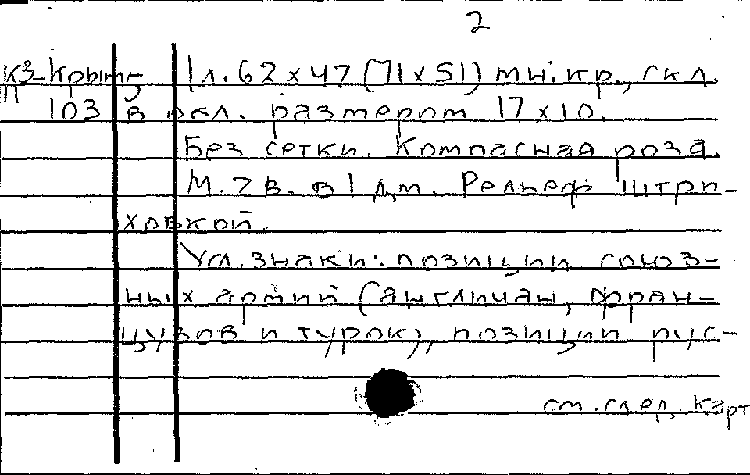 2
К3-Крым, 1 л. 62 х 47 (71 х 51) тш. кр., скл.
П 103 в обл. размером 17 х 10.
Без сетки. Компасная роза.
М. 2 в. в 1 дм. Рельеф штри-
ховкой.
Усл. знаки: позиции союз-
ных армий (англичан, фран-
цузов и турок), позиции рус-
см. след. карт